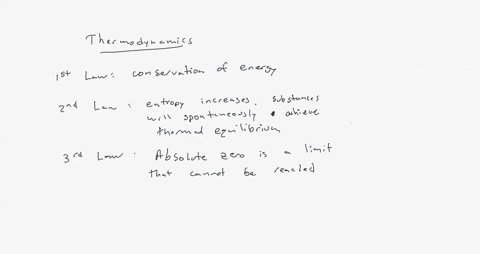 Thermodynamics
1st Law: conservation of energy
2nd Law: entropy increases. substances
will spontaneously achieve
thermal equilibrium
3rd Law: Absolute zero is a limit
that cannot be reached